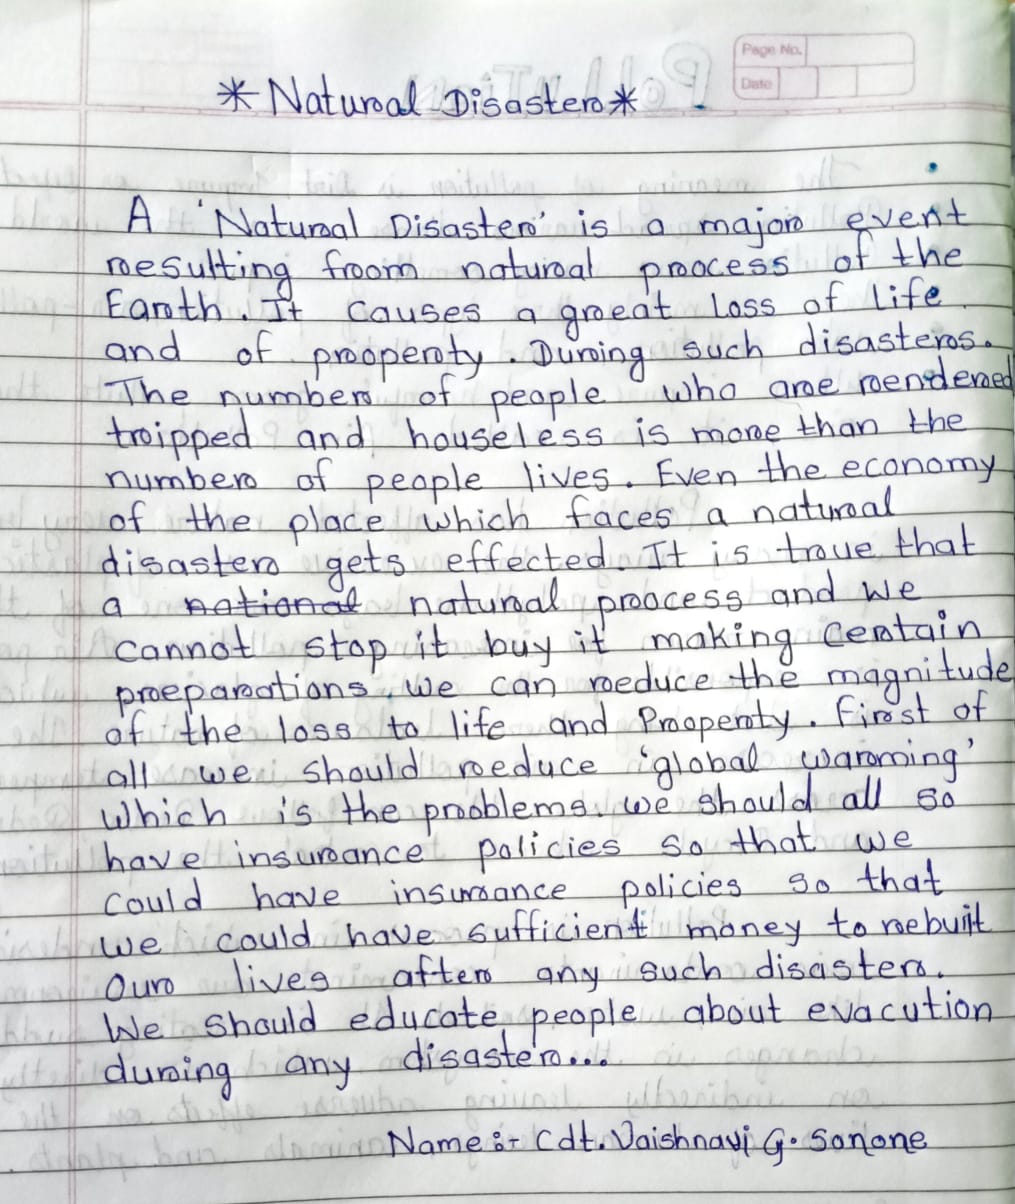 Page No.
Date
*Natural Disaster*
A 'Natural Disaster' is a major event
resulting from natural process of the
Earth. It causes a great loss of life
and of property. During such disasters.
The number of people who are rendered
tripped and houseless is more than the
number of people lives. Even the economy
of the place which faces a natural
disaster gets effected. It is true that
a national natural process and we
cannot stop it buy it making certain
preparations, we can reduce the magnitude
of the loss to life and Property. First of
all we should reduce 'global warming'
which is the problems. we should all so
have insurance policies so that we
could have insurance policies so that
we could have sufficient money to rebuit
Our lives after any such disaster.
We should educate people about evacution
during any disaster...
Name :- Cdt. Vaishnavi G. Sonone